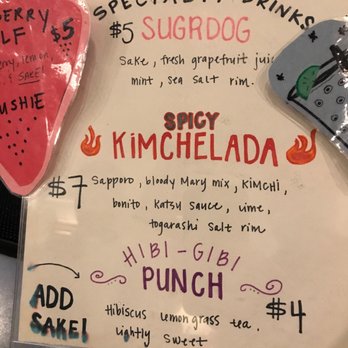 SPECIALTY DRINKS
$5 SUGRDOG
Sake, fresh grapefruit juice
mint, sea salt rim.
SPICY
KIMCHELADA
$7 Sapporo, bloody Mary mix, KIMCHI,
bonito, Katsu sauce, lime,
togarashi salt rim
HIBI-GIBI
PUNCH
$4
Hibiscus lemongrass tea.
lightly sweet
ADD
SAKE!
$5
lemon,
& SAKE!